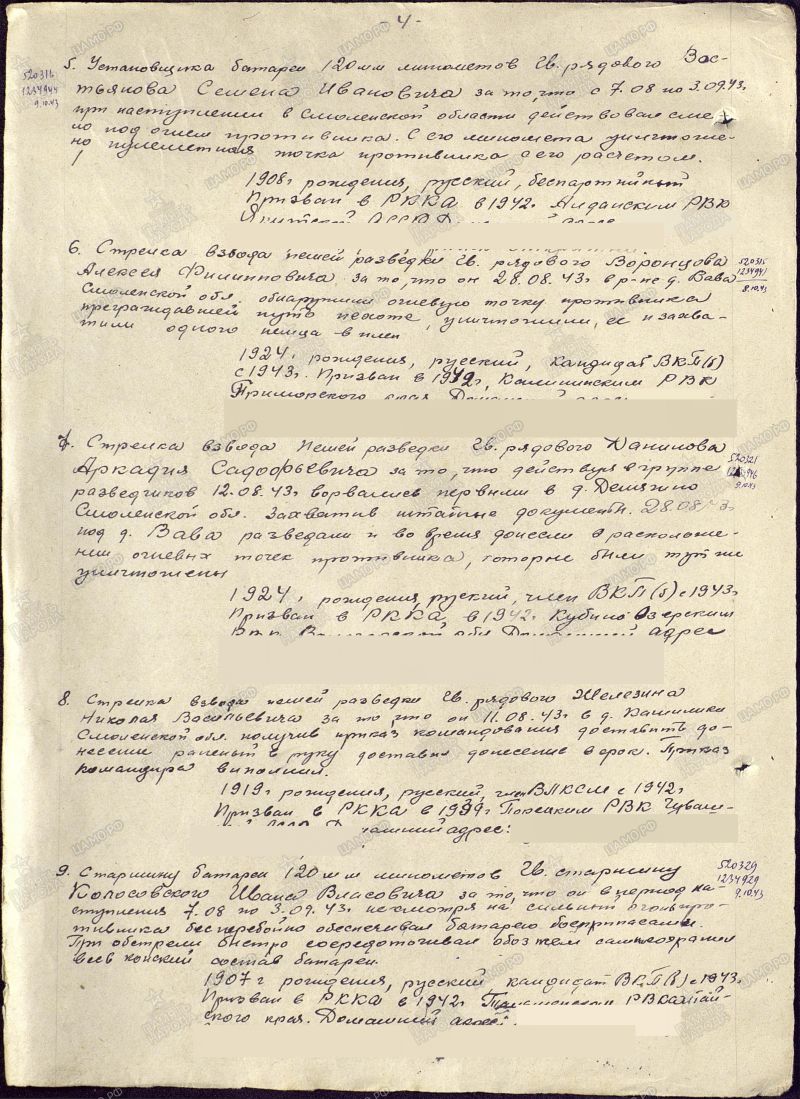 - 4 -
5. Установщика батареи 120 мм минометов Гв. рядового Вос-
тьянова Семена Ивановича за то, что с 7.08 по 3.09.43г
при наступлении в Смоленской области действовал сме-
ло под огнем противника. С его миномета уничтоже-
но пулеметная точка противника с его расчетом.
520316
1234944
9.10.43
1908г рождения, русский, беспартийный
Призван в РККА в 1942г. Алданским РВК
6. Стрелка взвода пешей разведки Гв. рядового Воронцова
Алексея Филипповича за то, что он 28.08.43г в р-не д. Вава
Смоленской обл. обнаружили огневую точку противника
преграждавшей путь пехоте, уничтожили, ее и захва-
тили одного немца в плен
520315
1234941
8.10.43
1924г. рождения, русский, кандидат ВКП(б)
с 1943г. Призван в 1942г, Калининским РВК
Приморского края.
7. Стрелка взвода пешей разведки Гв. рядового Данилова
Аркадия Садофьевича за то, что действуя в группе
разведчиков 12.08.43г ворвались первыми в д.
Смоленской обл. Захватив штабные документы. 28.08.43г
под д. Вава разведали и во время донесли о расположе-
нии огневых точек противника, которые были тут же
уничтожены
520321
9.10.43
1924г рождения, русский, член ВКП(б) с 1943г.
Призван в РККА в 1942г. Кубино Озерским
адрес
8. Стрелка взвода пешей разведки Гв. рядового Железина
Николая Васильевича за то, что он 11.08.43г в д.
Смоленской обл. получив приказ командования доставить до-
несение раненый в руку доставил донесение в срок. Приказ
командира выполнил.
1919г рождения, русский, член ВЛКСМ с 1942г
Призван в РККА в 1939г Порецким РВК Чуваш-
адрес:
9. Старшину батареи 120 мм минометов Гв. старшину
Колосовского Ивана Власовича за то, что он в период на-
ступления 7.08 по 3.09.43г несмотря на сильный огонь про-
тивника бесперебойно обеспечивал батарею боеприпасами.
При обстреле быстро сосредотачивал обоз
весь конский состав батареи.
520329
1234929
9.10.43
1907г рождения, русский кандидат ВКП(б) с 1943г.
Призван в РККА в 1942г РВК Алтай-
ского края. Домашний адрес.